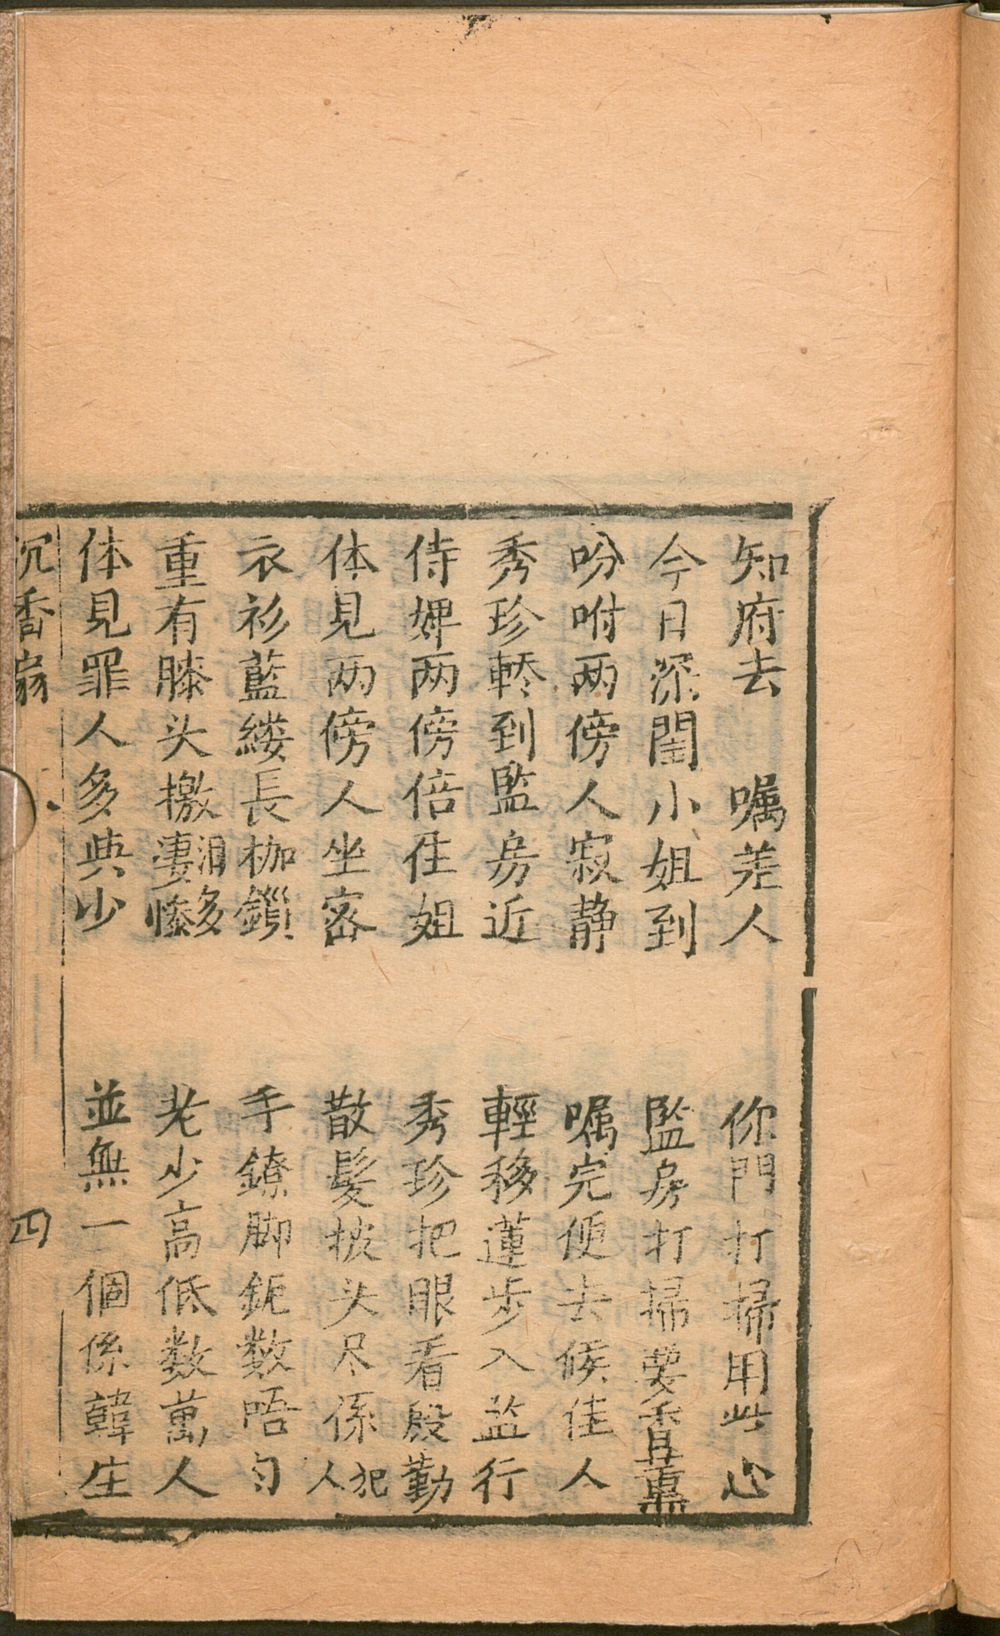 知府去　嘱差人　你門打掃用些心
今日深閨小姐到　監房打掃要香薰
吩咐两傍人寂静　嘱完便去候佳人
秀珍轎到監房近　輕移蓮步入监行
侍婢两傍倍住姐　秀珍把眼看殷勤
体見两傍人坐密　散髮披头尽係犯人
衣衫藍縷長枷鎖　手鐐脚鈪数唔匀
重有膝头撽淚多凄惨　老少高低数萬人
体見罪人多典少　並無一個係韓生
沉香扇　四